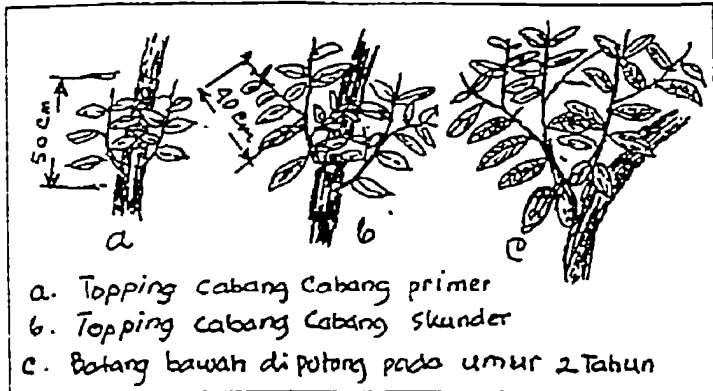 50 cm
40 cm
a
b
c
a. Topping cabang cabang primer
b. Topping cabang cabang skunder
c. Batang bawah dipotong pada umur 2 Tahun